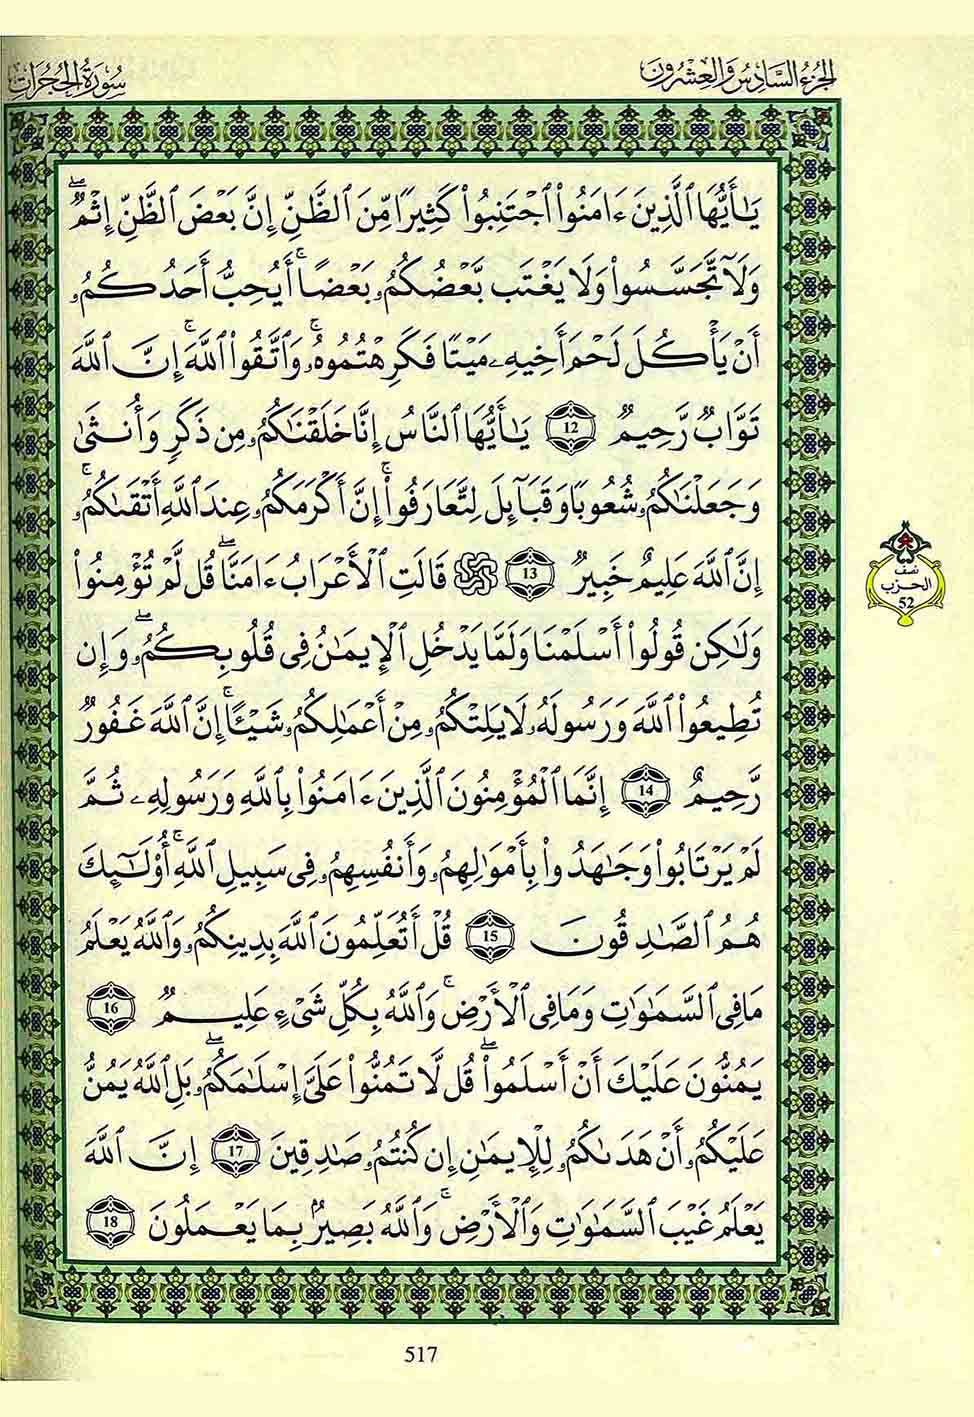 الجزء السادس والعشرون
سورة الحجرات
يَـٰٓأَيُّهَا ٱلَّذِينَ ءَامَنُوا۟ ٱجْتَنِبُوا۟ كَثِيرًا مِّنَ ٱلظَّنِّ إِنَّ بَعْضَ ٱلظَّنِّ إِثْمٌۖ
وَلَا تَّجَسَّسُوا۟ وَلَا يَغْتَب بَّعْضُكُمُۥ بَعْضًاۚ أَيُحِبُّ أَحَدُكُمُۥ
أَنْ يَأْكُلَ لَحْمَ أَخِيهِۦ مَيْتًا فَكَرِهْتُمُوهُۥۚ وَٱتَّقُوا۟ ٱللَّهَۚ إِنَّ ٱللَّهَ
تَوَّابٌ رَّحِيمٌ 12 يَـٰٓأَيُّهَا ٱلنَّاسُ إِنَّا خَلَقْنَـٰكُمُۥ مِن ذَكَرٍ وَأُنثَىٰ
وَجَعَلْنَـٰكُمُۥ شُعُوبًا وَقَبَآئِلَ لِتَّعَارَفُوٓا۟ۚ إِنَّ أَكْرَمَكُمُۥ عِندَ ٱللَّهِ أَتْقَىٰكُمُۥۚ
إِنَّ ٱللَّهَ عَلِيمٌ خَبِيرٌ 13 قَالَتِ ٱلْأَعْرَابُ ءَامَنَّاۖ قُل لَّمْ تُؤْمِنُوا۟
وَلَـٰكِن قُولُوٓا۟ أَسْلَمْنَا وَلَمَّا يَدْخُلِ ٱلْإِيمَـٰنُ فِى قُلُوبِكُمُۥۖ وَإِن
تُطِيعُوا۟ ٱللَّهَ وَرَسُولَهُۥ لَا يَلِتْكُمُۥ مِنْ أَعْمَـٰلِكُمُۥ شَيْـًٔاۚ إِنَّ ٱللَّهَ غَفُورٌ
رَّحِيمٌ 14 إِنَّمَا ٱلْمُؤْمِنُونَ ٱلَّذِينَ ءَامَنُوا۟ بِٱللَّهِ وَرَسُولِهِۦ ثُمَّ
لَمْ يَرْتَابُوا۟ وَجَـٰهَدُوا۟ بِأَمْوَٰلِهِمُۥ وَأَنفُسِهِمُۥ فِى سَبِيلِ ٱللَّهِۚ أُو۟لَـٰٓئِكَ
هُمُ ٱلصَّـٰدِقُونَ 15 قُلْ أَتُعَلِّمُونَ ٱللَّهَ بِدِينِكُمُۥ وَٱللَّهُ يَعْلَمُ
مَا فِى ٱلسَّمَـٰوَٰتِ وَمَا فِى ٱلْأَرْضِۚ وَٱللَّهُ بِكُلِّ شَىْءٍ عَلِيمٌ 16
يَمُنُّونَ عَلَيْكَ أَنْ أَسْلَمُوا۟ۖ قُل لَّا تَمُنُّوا۟ عَلَىَّ إِسْلَـٰمَكُمُۥۖ بَلِ ٱللَّهُ يَمُنُّ
عَلَيْكُمُۥ أَنْ هَدَىٰكُمُۥ لِلْإِيمَـٰنِ إِن كُنتُمُۥ صَـٰدِقِينَ 17 إِنَّ ٱللَّهَ
يَعْلَمُ غَيْبَ ٱلسَّمَـٰوَٰتِ وَٱلْأَرْضِۚ وَٱللَّهُ بَصِيرٌۢ بِمَا يَعْمَلُونَ 18
نصف
الحزب
52
517